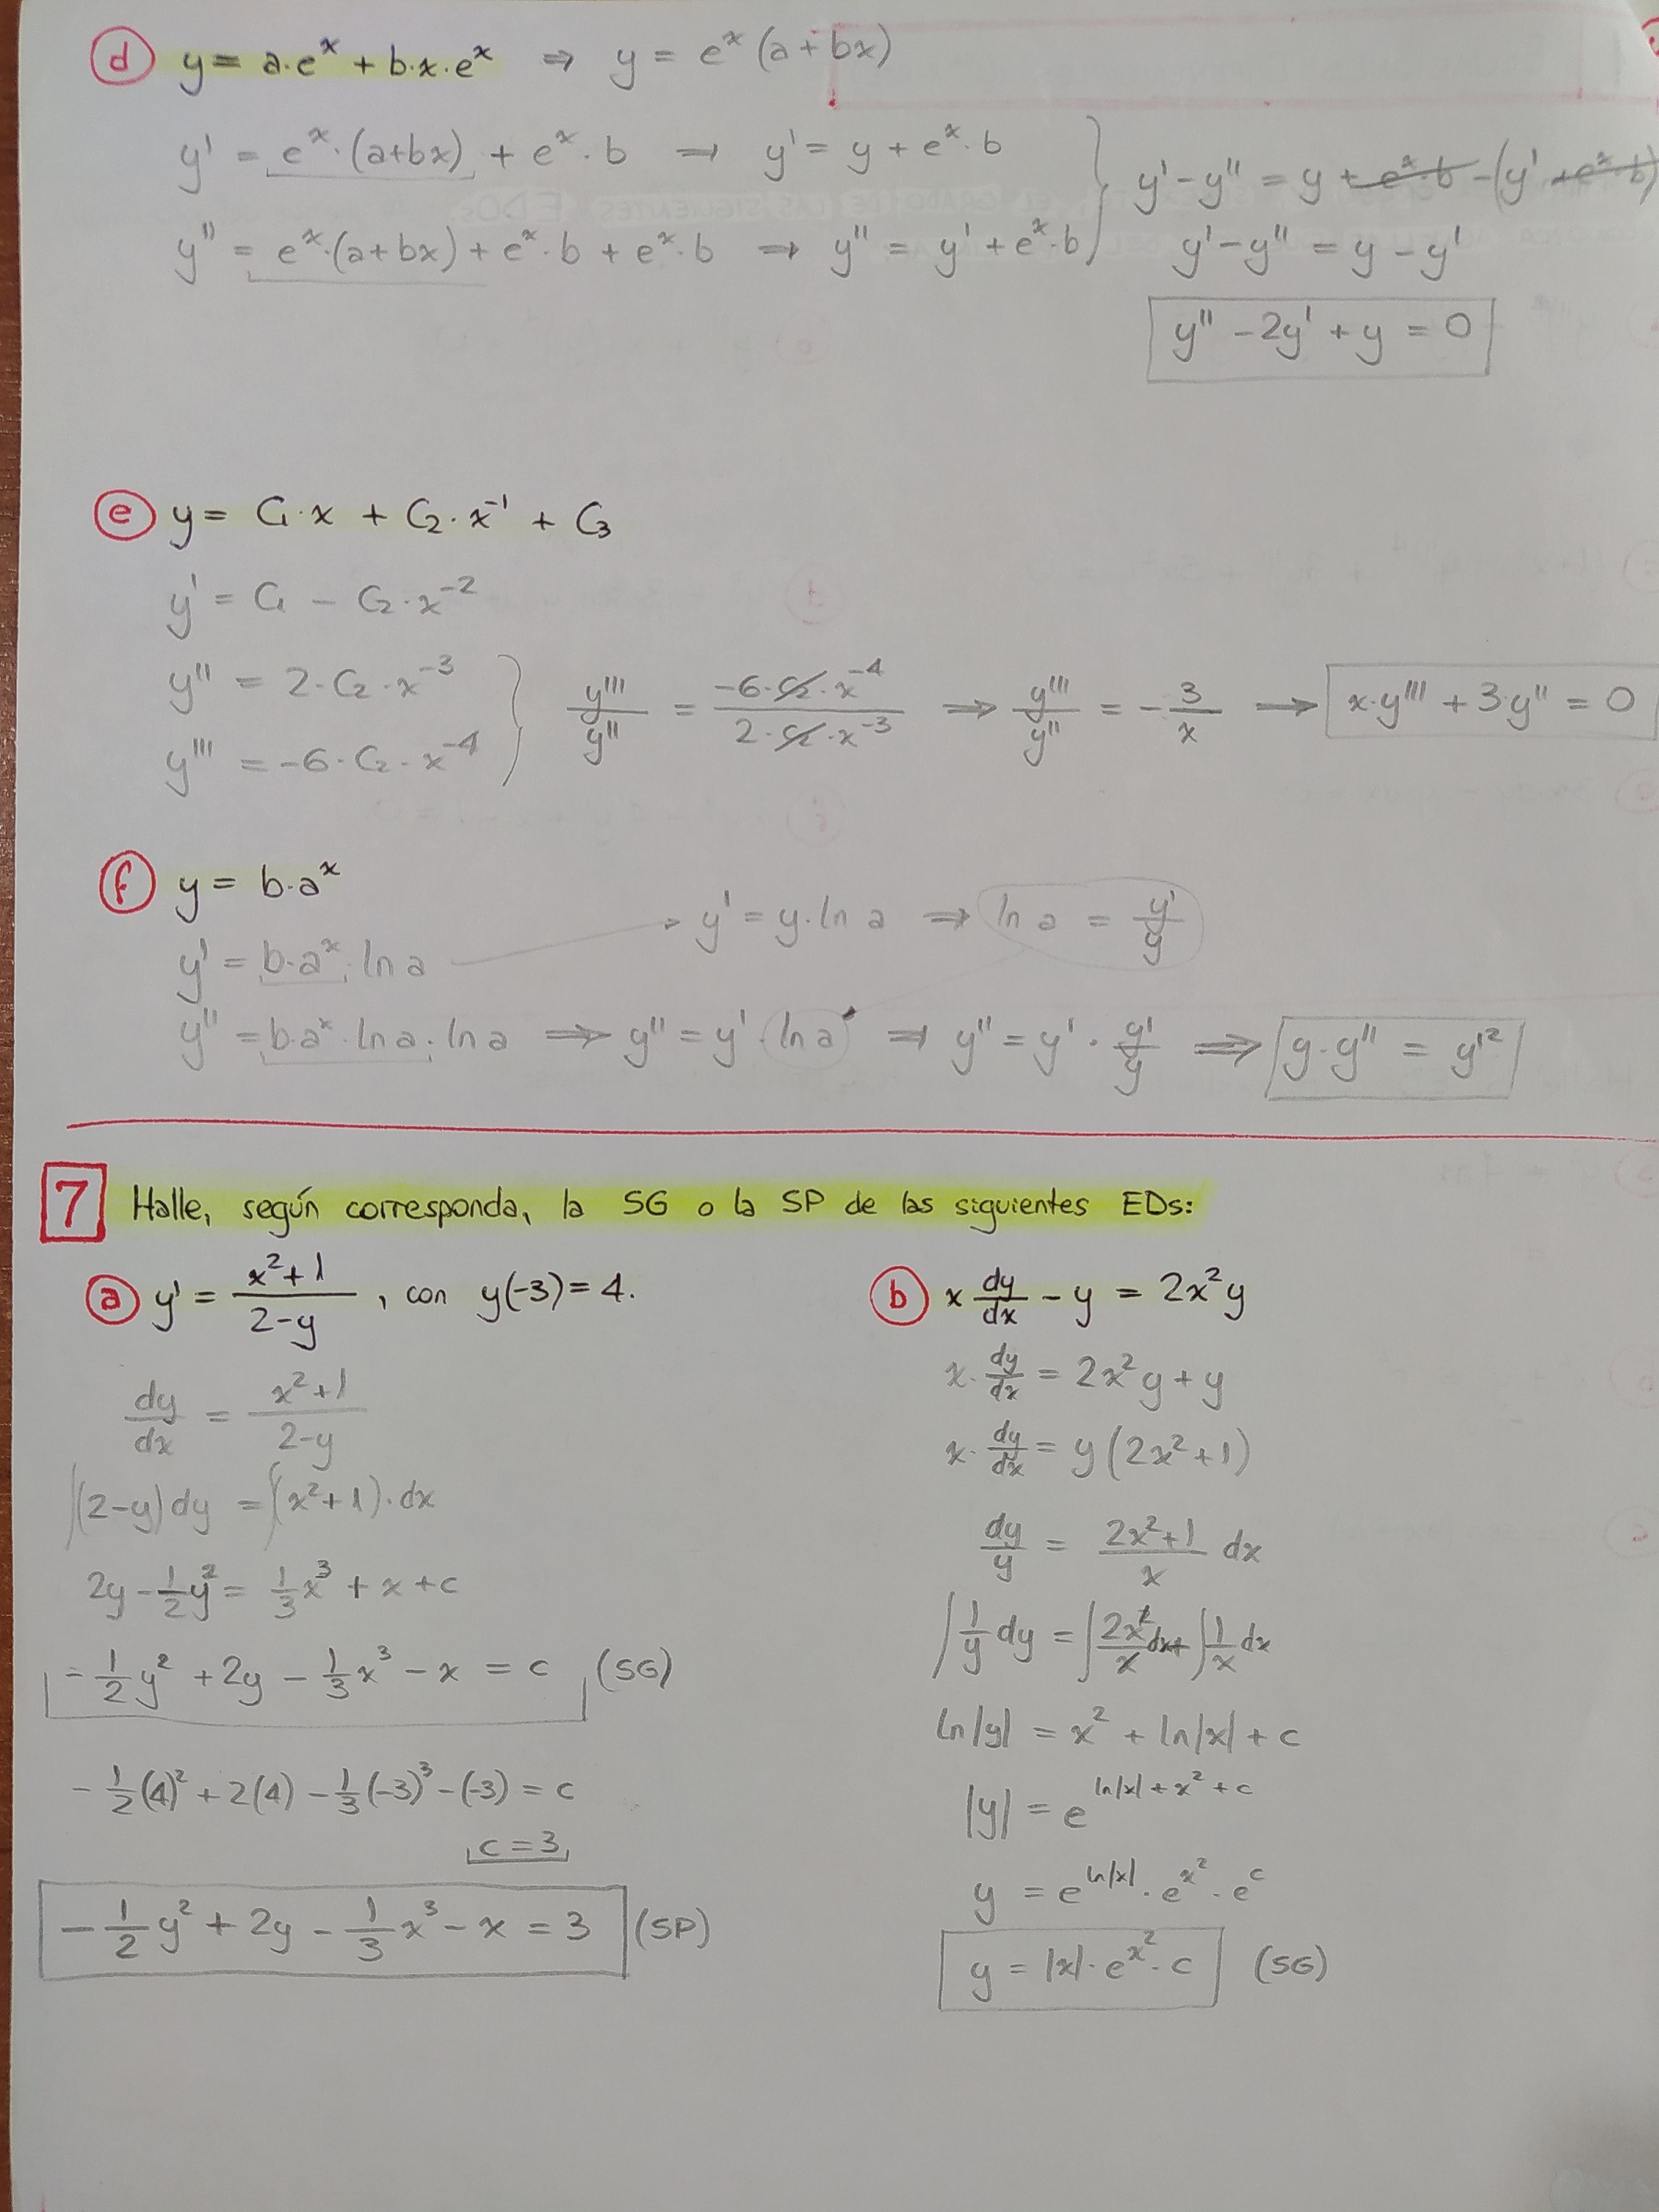 d y = a·eˣ + b·x·eˣ ⇒ y = eˣ (a + bx)
y' = eˣ·(a+bx) + eˣ·b → y' = y + eˣ·b
y'' = eˣ·(a+bx) + eˣ·b + eˣ·b ⇒ y'' = y' + eˣ·b
y' - y'' = y + eˣ·b - (y' + eˣ·b)
y' - y'' = y - y'
y'' - 2y' + y = 0
e y = C₁·x + C₂·x⁻¹ + C₃
y' = C₁ - C₂·x⁻²
y'' = 2·C₂·x⁻³
y''' = -6·C₂·x⁻⁴
y'''/y'' = (-6·C₂·x⁻⁴)/(2·C₂·x⁻³) ⇒ y'''/y'' = -3/x → x·y''' + 3·y'' = 0
f y = b·aˣ
y' = b·aˣ·ln a → y' = y·ln a ⇒ ln a = y'/y
y'' = b·aˣ·ln a·ln a ⇒ y'' = y'·ln a ⇒ y'' = y'·y'/y ⇒ y·y'' = y'²
7 Halle, según corresponda, la SG o la SP de las siguientes EDs:
a y' = (x²+1)/(2-y), con y(-3) = 4.
dy/dx = (x²+1)/(2-y)
∫(2-y)dy = ∫(x²+1)·dx
2y - 1/2 y² = 1/3 x³ + x + c
-1/2 y² + 2y - 1/3 x³ - x = c (SG)
-1/2 (4)² + 2(4) - 1/3 (-3)³ - (-3) = c
c = 3
-1/2 y² + 2y - 1/3 x³ - x = 3 (SP)
b x dy/dx - y = 2x²y
x·dy/dx = 2x²y + y
x·dy/dx = y(2x²+1)
dy/y = (2x²+1)/x dx
∫1/y dy = ∫2x²/x dx + ∫1/x dx
ln|y| = x² + ln|x| + c
|y| = e^(ln|x| + x² + c)
y = e^(ln|x|)·e^(x²)·e^c
y = |x|·e^(x²)·c (SG)